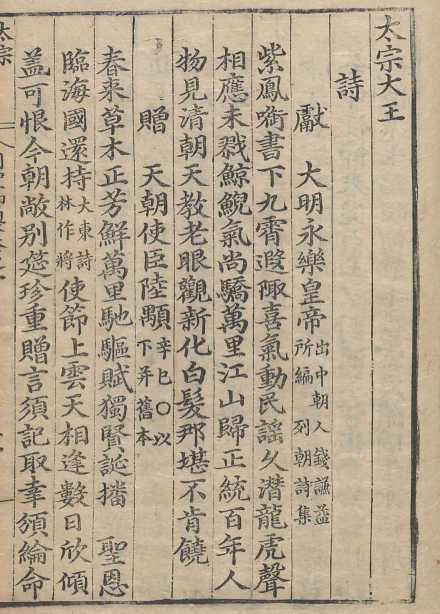 太宗大王
詩
獻 大明永樂皇帝 出中朝人錢謙益所編列朝詩集
紫鳳啣書下九霄遐陬喜氣動民謠久潛龍虎聲
相應未戮鯨鯢氣尚驕萬里江山歸正統百年人
物見清朝天教老眼觀新化白髮那堪不肯饒
贈 天朝使臣陸顒 辛巳〇以下幷舊本
春來草木正芳鮮萬里馳驅賦獨賢誕播 聖恩
臨海國還持大東詩林作將使節上雲天相逢數日欣傾
盖可恨今朝敞別筵珍重贈言須記取幸頒綸命
太宗